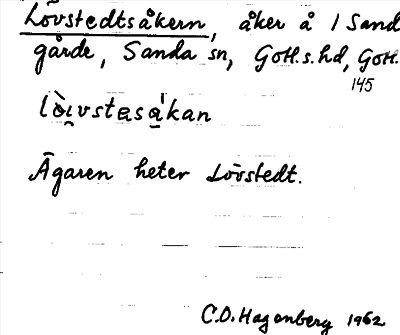 Lövstedtsåkern, åker å 1 Sand
gårde, Sanda sn, Gotl.s.hd, Gotl.
145
Ägaren heter Lövstedt.
C.O. Hagenberg 1962